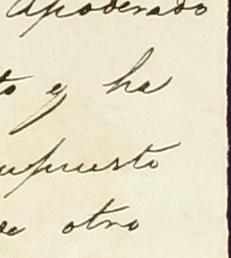 apoderado
to y ha
upuesto
se otro